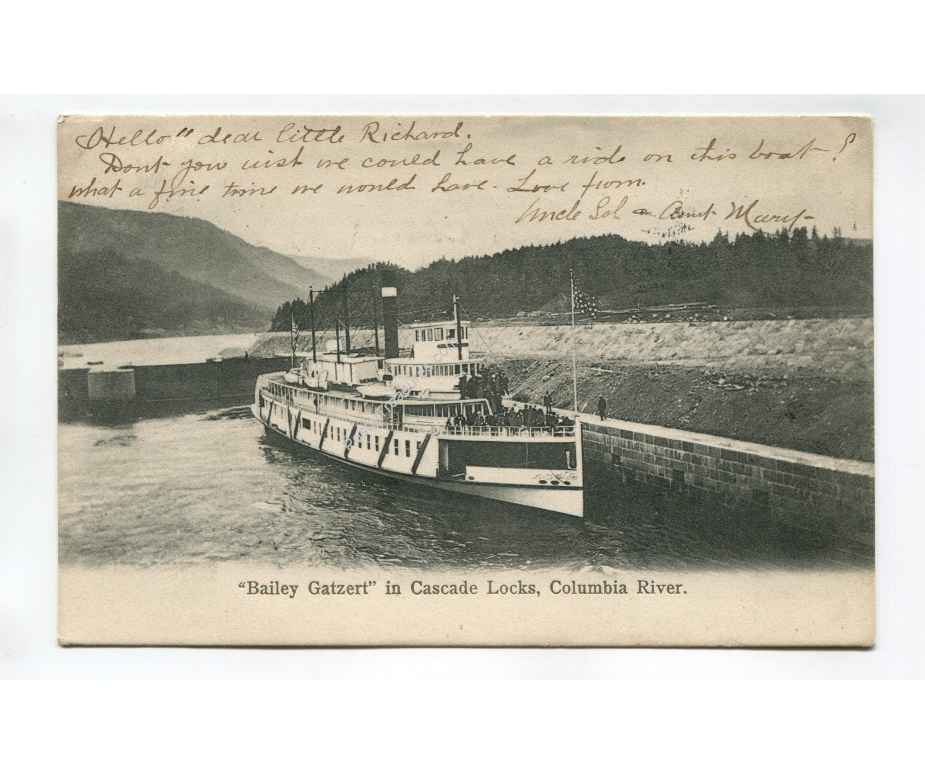 "Hello" dear little Richard.
Dont you wist we could have a ride on this boat?
what a fine time we would have. Love from
Uncle Sol & Aunt Mary
"Bailey Gatzert" in Cascade Locks, Columbia River.